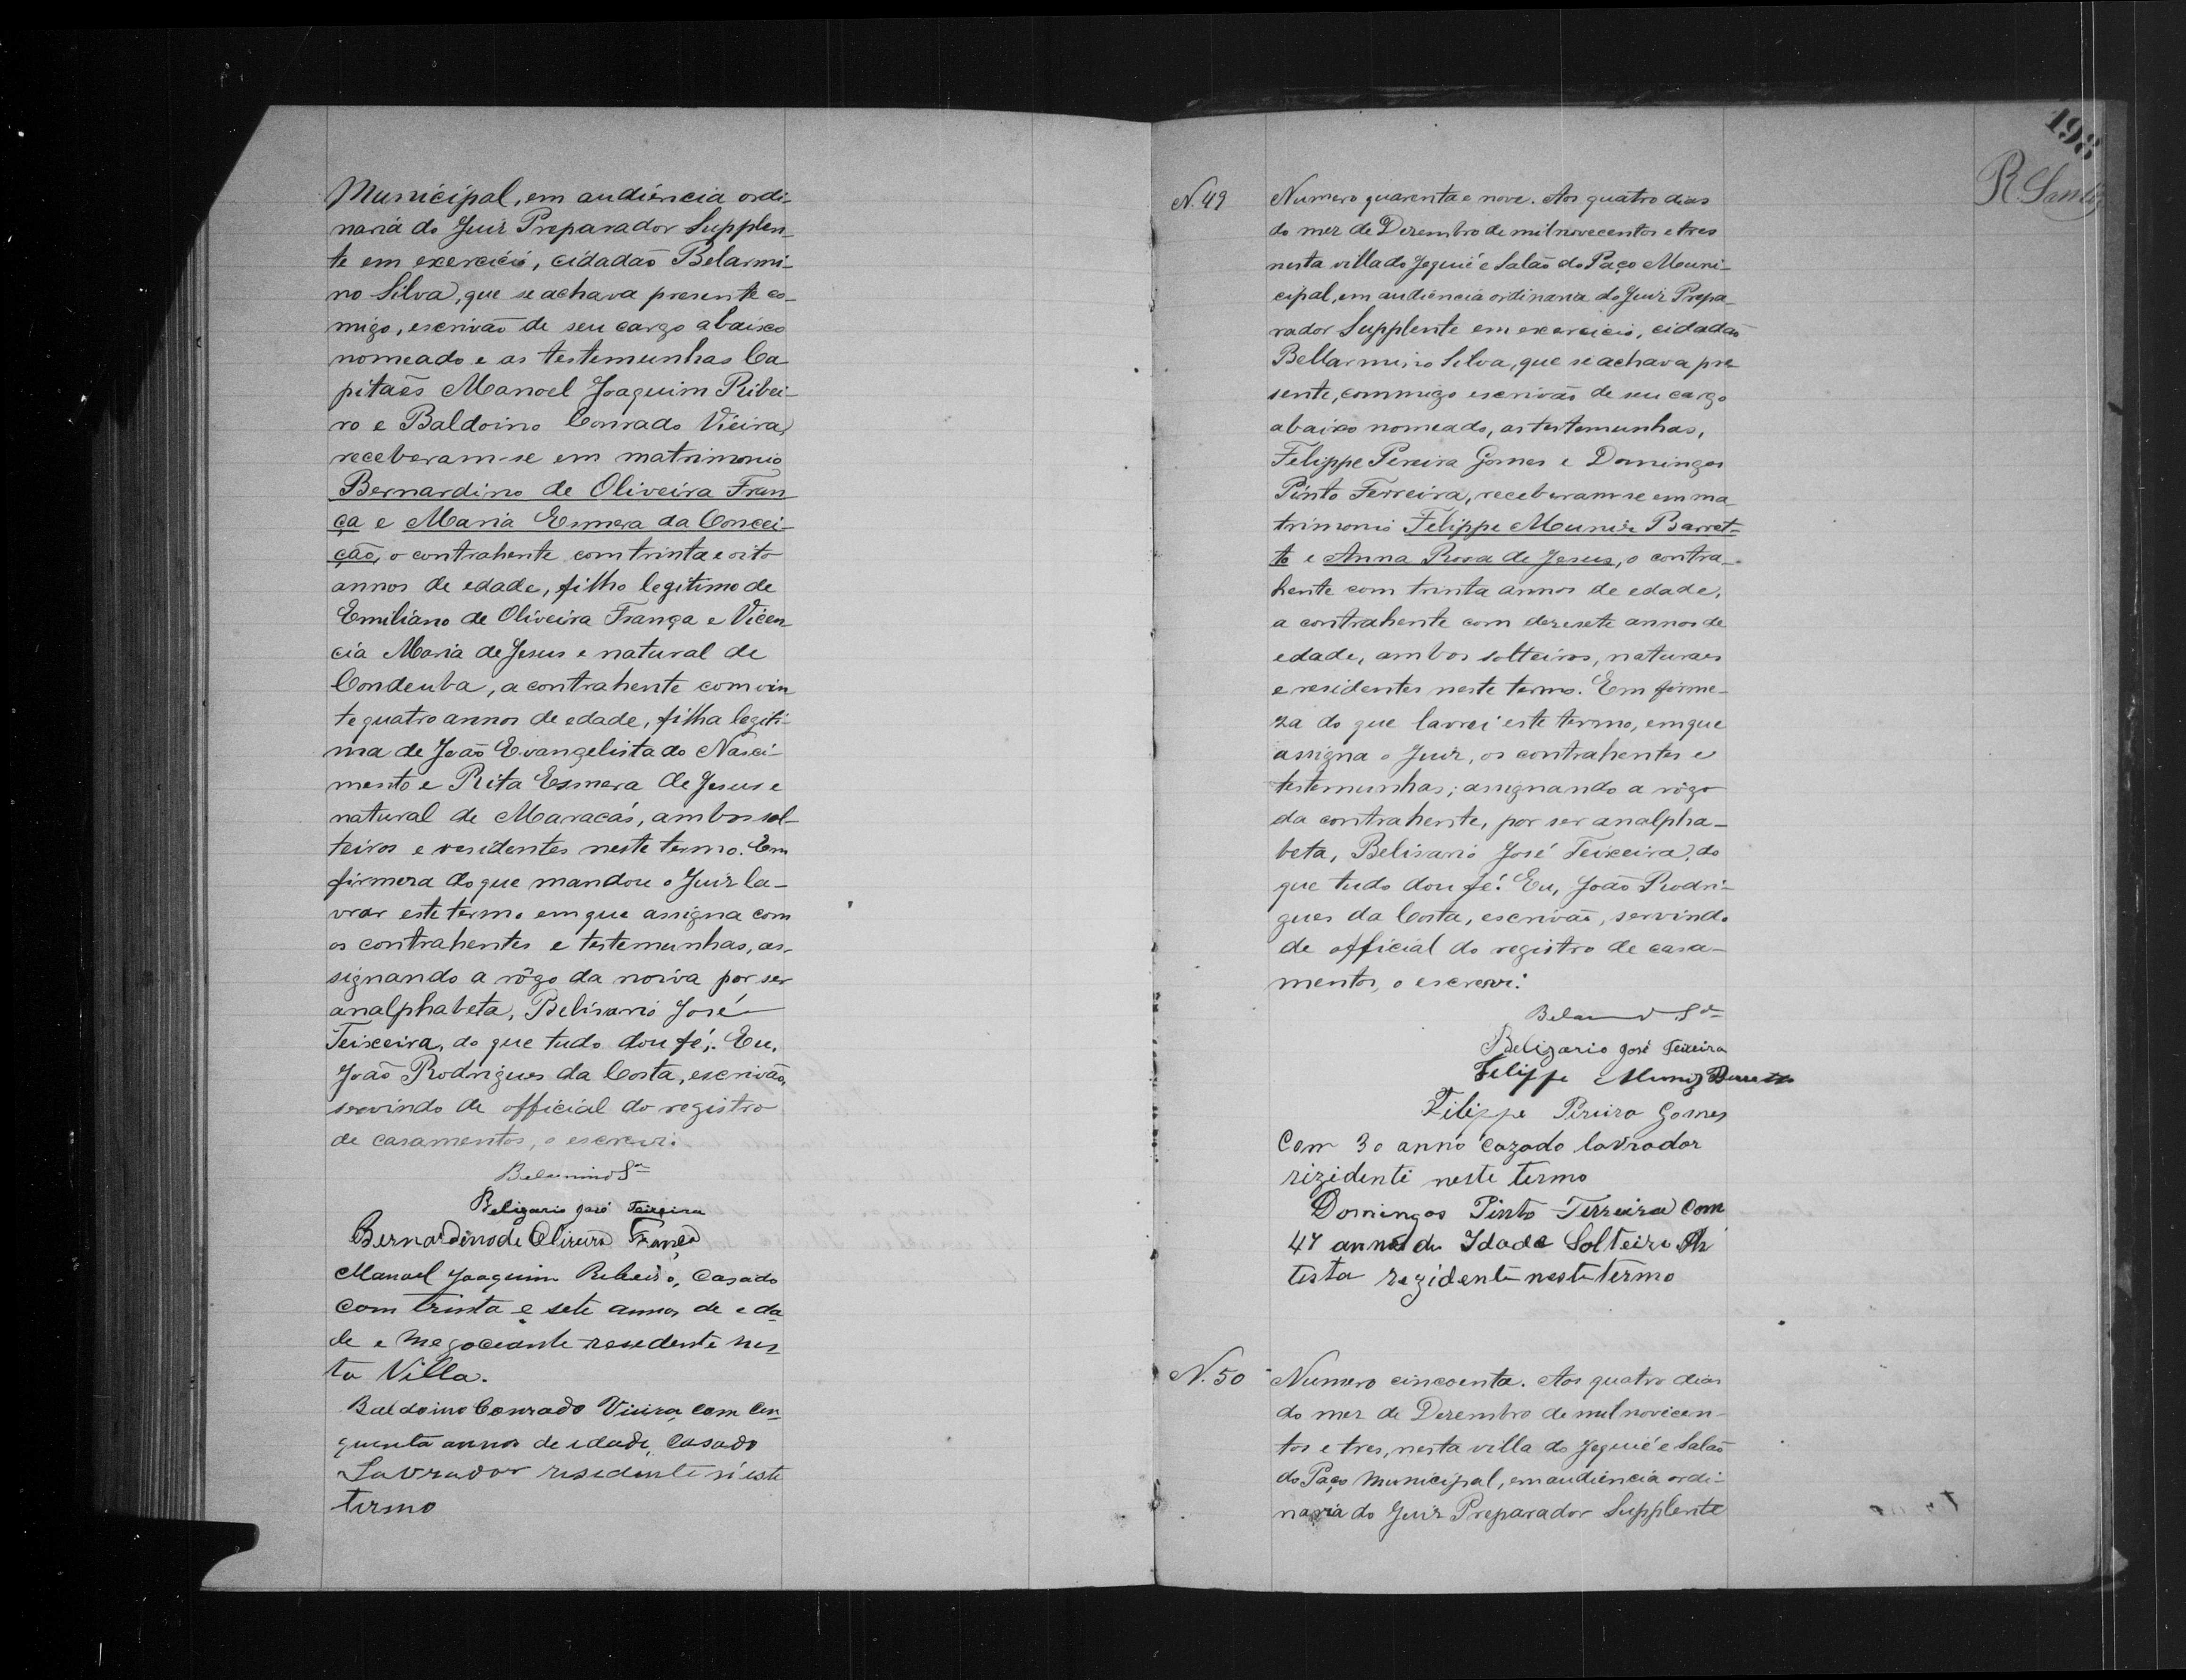 Municipal, em audiencia ordi-
naria do Juiz Preparador Supplen-
te em exercicio, cidadão Belarmi-
no Silva, que se achava presente co-
migo, escrivão de seu cargo abaixo
nomeado e as testemunhas Ca
pitaẽs Manoel Joaquim Ribei-
ro e Baldoino Conrado Vieira,
receberam-se em matrimonio
Bernardino de Oliveira Fran
ça e Maria Esmera da Concei-
ção, o contrahente com trinta e oito
annos de edade, filho legitimo de
Emiliano de Oliveira França e Vicen
cia Maria de Jesus e natural de
Condeuba, a contrahente com vin
te quatro annos de edade, filha legiti-
ma de João Evangelista do Nasci-
mento e Rita Esmera de Jesus e
natural de Maracás, ambos sol-
teiros e residentes neste termo. Em
firmeza do que mandou o Juiz la-
vrar este termo em que assigna com
os contrahentes e testemunhas, as-
signando a rôgo da noiva por ser
analphabeta, Belisario José
Teixeira, do que tudo dou fé. Eu,
João Rodrigues da Costa, escrivão,
servindo de official do registro
de casamentos, o escrevi.
Belarmino Sa
Belizario José Teixeira
Bernardino de Olivura França
Manoel Joaquim Ribeiro, Casado
com trinta e sete annos de e da
de e negociante resedente nes
ta Villa.
Baldoino Conrado Vieira, com cin
quenta annos de idade, Casado
Lavrador resedente n'este
termo
198
R. Santos
N. 49
Numero quarenta e nove. Aos quatro dias
do mez de Dezembro de mil novecentos e tres
nesta villa do Jequié e Salão do Paço Muni-
cipal, em audiencia ordinaria do Juiz Prepa-
rador Supplente em exercicio, cidadão
Bellarmino Silva, que se achava pre
sente, commigo escrivão de seu cargo
abaixo nomeado, as testemunhas,
Felippe Pereira Gomes e Domingos
Pinto Ferreira, receberam-se em ma
trimonio Felippe Muniz Barret-
to e Anna Rosa de Jesus, o contra-
hente com trinta annos de edade,
a contrahente com dezesete annos de
edade, ambos solteiros, naturaes
e residentes neste termo. Em firme-
za do que lavrei este termo, em que
assigna o Juiz, os contrahentes e
testemunhas; assignando a rôgo
da contrahente, por ser analpha-
beta, Belisario José Teixeira, do
que tudo dou fé. Eu, João Rodri-
gues da Costa, escrivão, servindo
de official do registro de casa-
mentos, o escrevi.
Belizario José Teixeira
Felippe Muniz Barretto
Filippe Pereira Gomes
Com 30 anno cazado lavrador
rizidenti neste termo
Domingos Pinto Ferreira Com
47 annos de Idade Solteiro
tista rezidente neste termo
N. 50
Numero cincoenta. Aos quatro dias
do mez de Dezembro de mil novicen-
tos e tres, nesta villa do Jequié e Salão
do Paço Municipal, em audiencia ordi-
naria do Juiz Preparador Supplente